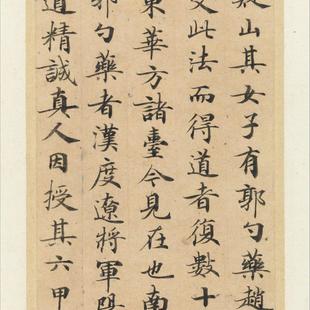 疑山其女子有郭勺藥趙
受此法而得道者復數十
東華方諸臺今見在也南
郭勺藥者漢度遼將軍陽
道精誠真人因授其六甲